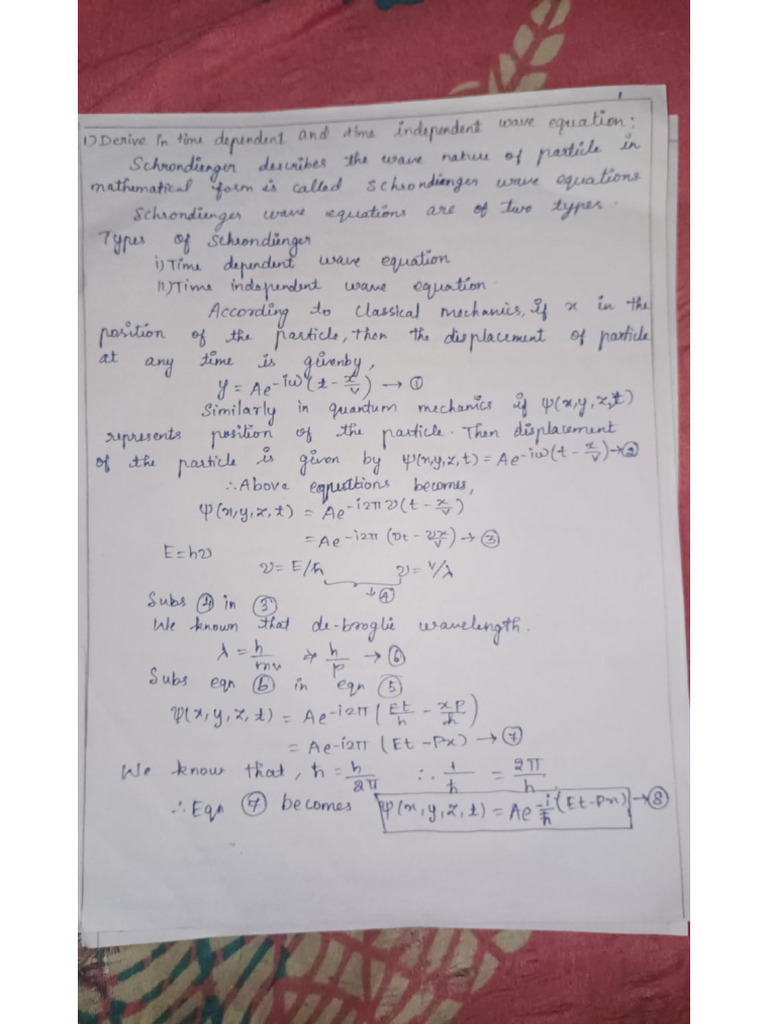 1) Derive in time dependent and time independent wave equation:
Schrondienger describes the wave nature of particle in
mathematical form is called Schrondienger wave equations
Schrondienger wave equations are of two types.
Types of Schrondiunger
i) Time dependent wave equation
II) Time independent wave equation.
According to classical mechanics, if x in the
position of the particle, then the displacement of particle
at any time is givenby,
y = Ae^-iω(t - x/v) → ①
Similarly in quantum mechanics if ψ(x,y,z,t)
represents position of the particle. Then displacement
of the particle is given by ψ(x,y,z,t) = Ae^-iω(t - x/v) → ②
∴ Above equations becomes,
ψ(x,y,z,t) = Ae^-i2πυ(t - x/v)
= Ae^-i2π(υt - υx/v) → ③
E = hυ
υ = E/h υ = v/λ
↓ ④
Subs ④ in ③
We known that de-broglie wavelength.
λ = h/mv ⇒ h/p → ⑥
Subs eqn ⑥ in eqn ⑤
ψ(x,y,z,t) = Ae^-i2π(Et/h - xp/h)
= Ae^-i2π(Et - Px) → ⑦
We know that, ħ = h/2π ∴ 1/ħ = 2π/h
∴ Eqn ⑦ becomes ψ(x,y,z,t) = Ae^-i/ħ(Et - Px) → ⑧